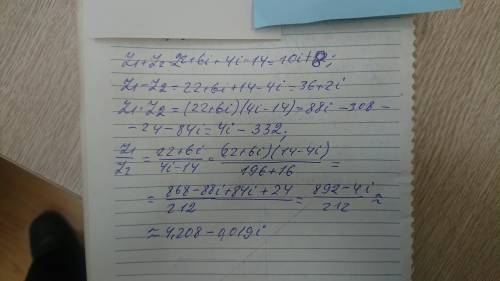 Z₁+Z₂=22+6i+4i-14=10i+8;
Z₁-Z₂=22+6i+14-4i=36+2i
Z₁·Z₂=(22+6i)(4i-14)=88i-308-
-24-84i=4i-332;
Z₁/Z₂=(22+6i)/(4i-14)=((22+6i)(14-4i))/(196+16)=
=(868-88i+84i+24)/212=(892-4i)/212≈
≈4,208-0,019i